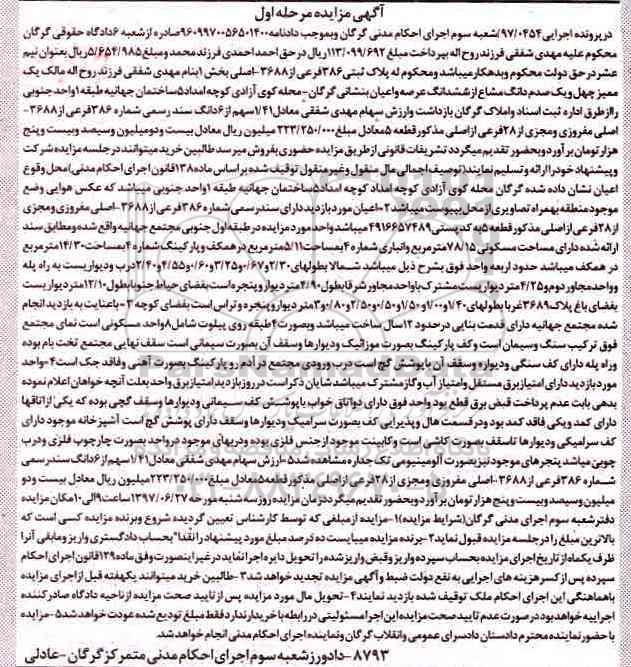 آگهی مزایده مرحله اول
در پرونده اجرایی ۹۷/۰۴۵۴/شعبه سوم اجرای احکام مدنی گرگان وبموجب دادنامه ۹۶۰۹۹۷۰۰۵۶۵۰۱۴۰۰صادره از شعبه ۶دادگاه حقوقی گرگان
محکوم علیه مهدی شفقی فرزند روح اله بپرداخت مبلغ ۱۱۳/۰۹۹/۶۹۲ریال در حق احمد احمدی فرزند محمد ومبلغ ۵/۶۵۴/۹۸۵ریال بعنوان نیم
عشر در حق دولت محکوم وبدهکار میباشد ومحکوم له پلاک ثبتی ۳۸۶فرعی از ۳۶۸۸-اصلی بخش ۱بنام مهدی شفقی فرزند روح اله مالک یک
ممیز چهل ویک صدم دانگ مشاع از ششدانگ عرصه واعیان بنشانی گرگان -محله کوی آزادی کوچه امداد۵ساختمان جهانیه طبقه ۱واحد جنوبی
را از طرق اداره ثبت اسناد واملاک گرگان بازداشت وارزش سهام مهدی شفقی معادل ۱/۴۱سهم از ۶دانگ سند رسمی شماره ۳۸۶فرعی از ۳۶۸۸-
اصلی مفروزی ومجزی از ۲۸فرعی از اصلی مذکور قطعه ۵معادل مبلغ ۲۲۳/۲۵۰/۰۰۰ میلیون ریال معادل بیست ودومیلیون وسیصد وبیست وپنج
هزار تومان برآورد وبحضور تقدیم میگردد تشریفات قانونی از طریق مزایده حضوری بفروش میرسد طالبین خرید میتوانند در جلسه مزایده شرکت
وپیشنهاد خود را ارائه وتسلیم نمایند(توصیف اجمالی مال منقول وغیر منقول توقیف شده بر اساس ماده ۱۳۸قانون اجرای احکام مدنی)محل وقوع
اعیان نشان داده شده گرگان محله کوی آزادی کوچه امداد کوچه امداد۵ساختمان جهانیه طبقه ۱واحد جنوبی میباشد که عکس هوایی وضع
موجود منطقه بهمراه تصاویری از محل بپیوست میباشد ۲-اعیان مورد بازدید دارای سند رسمی شماره ۳۸۶فرعی از ۳۶۸۸-اصلی مفروزی ومجزی
از ۲۸فرعی از اصلی مذکور قطعه ۵به کدپستی ۴۹۱۶۶۵۷۴۸۹میباشد واحد مورد مزایده در طبقه اول جنوبی مجتمع جهانیه واقع شده ومطابق سند
ارائه شده دارای مساحت مسکونی ۷۸/۱۵مترمربع وانباری شماره ۴بمساحت ۵/۱۱مترمربع در همکف وپارکینگ شماره ۴بمساحت ۱۴/۳۰مترمربع
در همکف میباشد حدود اربعه واحد فوق بشرح ذیل میباشد شمالا بطولهای ۲/۳۰و۰/۶۷و۳/۲۵و۰/۶۰و۴/۵۵و۲/۴۰درب ودیواریست به راه پله
وواحد مجاور دوم و۴/۲۵متر دیواریست مشترک باواحد مجاور شرقا بطول ۴/۹۰متر دیوار وپنجره است بفضای حیاط جنوبا بطول ۱۲/۱۰متر دیواریست
بفضای باغ پلاک ۳۶۸۹غربا بطولهای ۱/۴۰و۱/۰۰و۱/۵۰و۰/۵۰و۲/۵۰و۰/۸۰و۳متر دیوار وپنجره وتراس است بفضای کوچه ۳-باعنایت به بازدید انجام
شده مجتمع جهانیه دارای قدمت بنایی در حدود ۱۲سال ساخت میباشد وبصورت ۴طبقه روی پیلوت شامل ۸واحد مسکونی است نمای مجتمع
فوق ترکیب سنگ وسیمان است وکف پارکینگ بصورت موزائیک ودیوارها وسقف آن بصورت سیمانی است سقف نهایی مجتمع تخت بام بوده
وراه پله دارای کف سنگی ودیواره وسقف آن باپوشش گچ است درب ورودی مجتمع در آدم رو پارکینگ بصورت آهنی وفاقد جک است ۴-واحد
مورد بازدید دارای امتیاز برق مستقل وامتیاز آب وگاز مشترک میباشد شایان ذکر است در روز بازدید امتیاز برق واحد بعلت آنچه خواهان اعلام نموده
بدهی بابت عدم پرداخت قبض برق قطع بود واحد فوق دارای دواتاق خواب باپوشش کف سیمانی ودیوارها وسقف گچی بوده که یکی از اتاقها
دارای کمد ویکی فاقد کمد بود ودر قسمت هال وپذیرایی کف بصورت سرامیک ودیوارها وسقف دارای پوشش گچ است آشپزخانه موجود دارای
کف سرامیکی ودیوارها تاسقف بصورت کاشی است وکابینت موجود از جنس فلزی بوده ودربهای موجود در واحد بصورت چارچوب فلزی ودرب
چوبی میباشد پنجره های موجود نیز بصورت آلومینیومی تک جداره مشاهده شد ۵-ارزش سهام مهدی شفقی معادل ۱/۴۱سهم از ۶دانگ سند رسمی
شماره ۳۸۶فرعی از ۳۶۸۸-اصلی مفروزی ومجزی از ۲۸فرعی از اصلی مذکور قطعه ۵معادل مبلغ ۲۲۳/۲۵۰/۰۰۰میلیون ریال معادل بیست ودو
میلیون وسیصد وبیست وپنج هزار تومان برآورد وبحضور تقدیم میگردد زمان مزایده روز سه شنبه مورخه ۱۳۹۷/۰۶/۲۷ساعت ۹الی ۱۰مکان مزایده
دفتر شعبه سوم اجرای مدنی گرگان(شرایط مزایده)۱-مزایده از مبلغی که توسط کارشناس تعیین گردیده شروع وبرنده مزایده کسی است که
بالاترین مبلغ را در جلسه مزایده قبول نماید ۲-برنده مزایده میبایست ده درصد مبلغ مورد پیشنهاد را نقدا"بحساب دادگستری واریز ومابقی آنرا
ظرف یکماه از تاریخ اجرای مزایده بحساب سپرده واریز وقبض واریز شده را تحویل دایره اجرا نماید در غیر اینصورت وفق ماده ۱۲۹قانون اجرای احکام
سپرده پس از کسر هزینه های اجرایی به نفع دولت ضبط وآگهی مزایده تجدید خواهد شد ۳-طالبین خرید میتوانند یکهفته قبل از اجرای مزایده
باهماهنگی این اجرای احکام ملک توقیف شده بازدید نمایند ۴-تحویل مال مورد مزایده پس از تایید صحت مزایده از ناحیه دادگاه صادر کننده
اجراییه خواهد بود در صورت عدم تایید صحت مزایده این اجرا مسئولیتی در رابطه باخریدار ندارد فقط مبلغ تودیع شده عودت خواهد شد ۵-مزایده
باحضور نماینده محترم دادستان دادسرای عمومی وانقلاب گرگان ونماینده اجرای احکام مدنی انجام خواهد شد.
۸۷۹۳-دادورز شعبه سوم اجرای احکام مدنی متمرکز گرگان -عادلی